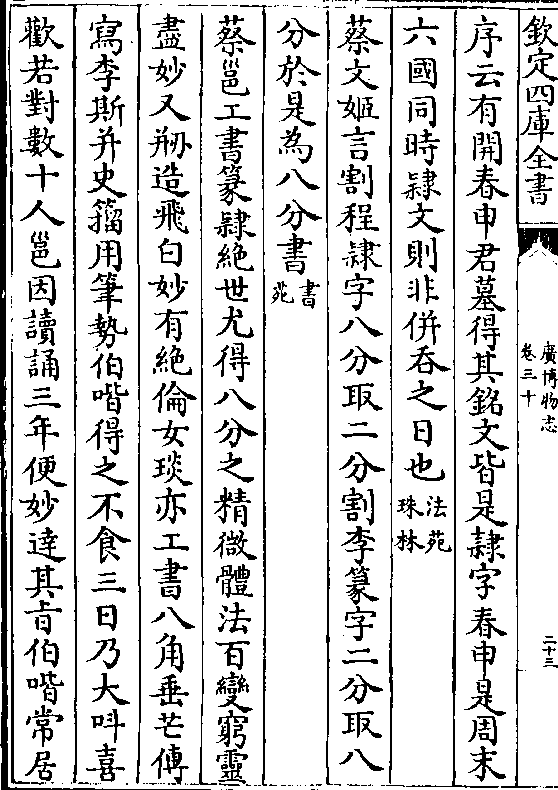 欽定四庫全書
廣博物志
卷三十
二十三
序云有開春申君墓得其銘文皆是隸字春申是周末
六國同時隸文則非併吞之日也法苑
珠林
蔡文姬言割程隸字八分取二分割李篆字二分取八
分於是為八分書書
苑
蔡邕工書篆隸絶世尤得八分之精微體法百變窮靈
盡妙又剏造飛白妙有絶倫女琰亦工書八角垂芒傳
寫李斯并史籀用筆勢伯喈得之不食三日乃大呌喜
歡若對數十人邕因讀誦三年便妙達其㫖伯喈常居